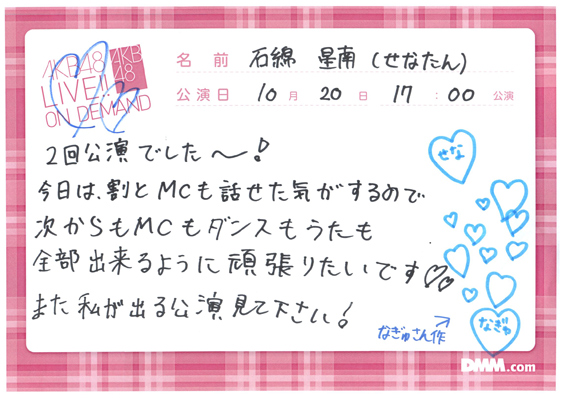 AKB48
LIVE!!
ON DEMAND
AKB
48
名前 石綿 星南(せなたん)
公演日 10月 20日 17:00 公演
2回公演でした〜!
今日は、割とMCも話せた気がするので
次からもMCもダンスもうたも
全部出来るように頑張りたいです♡♡
また私が出る公演見て下さい!
せな
なぎゅ
なぎゅさん作
DMM.com